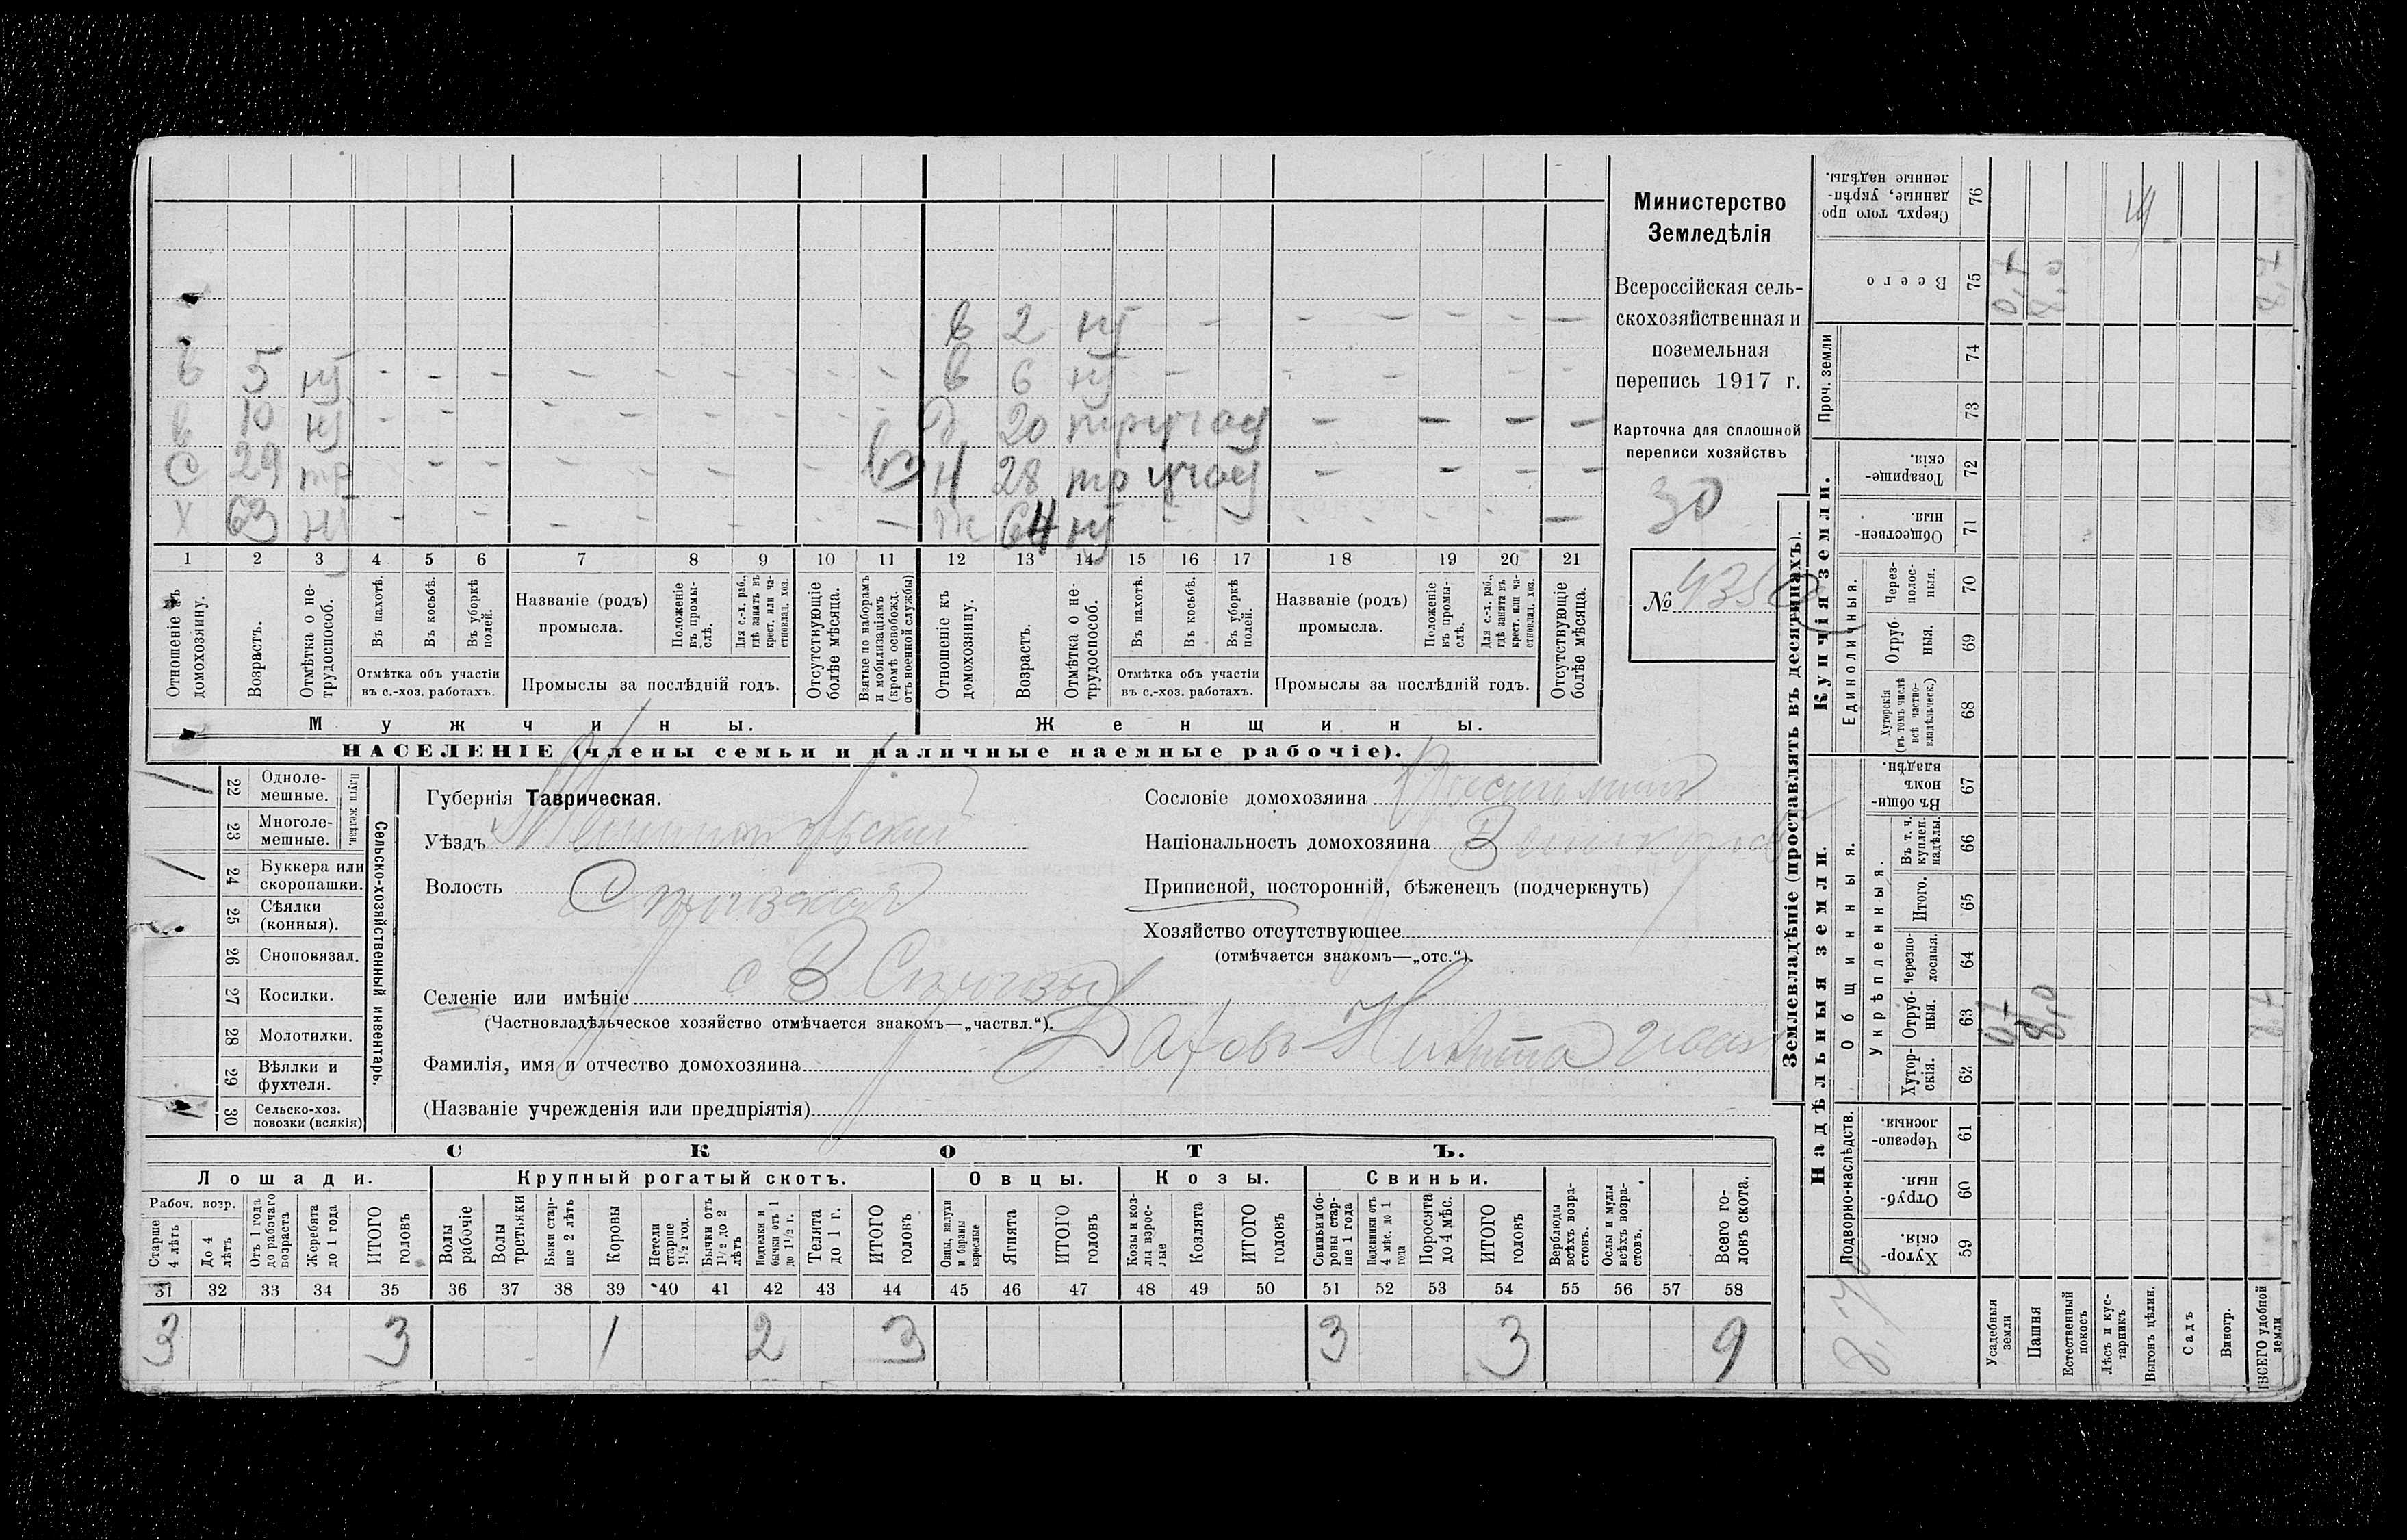 в 2 нј - - - - - - -
в 5 нј - - - - - - - - в 6 нј - - - -
в 10 нј - - - - - - - - 20 тр - - - -
С 29 тр - - - - - - вз Н 28 тр - - - -
Х 63 нј - - - - - - - ж 64 нј - - - - - - -
1 2 3 4 5 6 7 8 9 10 11 12 13 14 15 16 17 18 19 20 21
Отношеніе къ домохозяину.
Возрастъ.
Отмѣтка о не-
трудоспособ.
Въ пахотѣ.
Въ косьбѣ.
Въ уборкѣ полей.
Отмѣтка объ участіи
въ с.-хоз. работахъ.
Названіе (родъ)
промысла.
Положеніе въ промы-
слѣ.
Для с.-х. раб.,
гдѣ занятъ въ
крест. или ча-
стновлад. хоз.
Промыслы за послѣдній годъ.
Отсутствующіе
болѣе мѣсяца.
Взятые по наборамъ
и мобилизаціямъ
(кромѣ освобожд.
отъ военной службы)
Отношеніе къ
домохозяину.
Возрастъ.
Отмѣтка о не-
трудоспособ.
Въ пахотѣ.
Въ косьбѣ.
Въ уборкѣ
полей.
Отмѣтка объ участіи
въ с.-хоз. работахъ.
Названіе (родъ)
промысла.
Положеніе
въ промы-
слѣ.
Для с.-х. раб.,
гдѣ занята въ
крест. или ча-
стновлад. хоз.
Промыслы за послѣдній годъ.
Отсутствующіе
болѣе мѣсяца.
Мужчины.
Женщины.
НАСЕЛЕНІЕ (члены семьи и наличные наемные рабочіе).
Министерство
Земледѣлія
Всероссійская сель-
скохозяйственная и
поземельная
перепись 1917 г.
Карточка для сплошной
переписи хозяйствъ
30
№ 4350
/ 22 Одноле-
мешные.
23 Многоле-
мешные.
Плуги желѣзн.
/ 24 Буккера или
скоропашки.
25 Сѣялки
(конныя).
26 Сноповязал.
27 Косилки.
28 Молотилки.
29 Вѣялки и
фухтеля.
30 Сельско-хоз.
повозки (всякія)
Сельско-хозяйственный инвентарь.
Губернія Таврическая.
Уѣздъ Мелитопольскій
Волость
Селеніе или имѣніе с В
(Частновладѣльческое хозяйство отмѣчается знакомъ—„частвл.“).
Фамилія, имя и отчество домохозяина Никита Иван
(Названіе учрежденія или предпріятія)
Сословіе домохозяина
Національность домохозяина Великоросс
Приписной, посторонній, бѣженецъ (подчеркнуть)
Хозяйство отсутствующее
(отмѣчается знакомъ—„отс.“).
СКОТЪ.
Лошади. Крупный рогатый скотъ. Овцы. Козы. Свиньи.
Рабоч. возр.
Старше
4 лѣтъ
До 4
лѣтъ
Отъ 1 года
до рабочаго
возраста
Жеребята
до 1 года
ИТОГО
головъ
Волы
рабочіе
Волы
третьяки
Быки стар-
ше 2 лѣтъ
Коровы
Нетели
старше
1½ год.
Бычки отъ
1½ до 2
лѣтъ
Подтелки и
бычки отъ 1
до 1½ г.
Телята
до 1 г.
ИТОГО
головъ
Овцы, валухи
и бараны
взрослые
Ягнята
ИТОГО
головъ
Козы и коз-
лы взрос-
лые
Козлята
ИТОГО
головъ
Свиньи и бо-
ровы стар-
ше 1 года
Подсвинки отъ
4 мѣс. до 1
года
Поросята
до 4 мѣс.
ИТОГО
головъ
Верблюды
всѣхъ возра-
стовъ.
Ослы и мулы
всѣхъ возра-
стовъ.
Всего го-
ловъ скота.
31 32 33 34 35 36 37 38 39 40 41 42 43 44 45 46 47 48 49 50 51 52 53 54 55 56 57 58
3 3 1 2 3 3 3 9
Землевладѣніе (проставлять въ десятинахъ).
Надѣльныя земли.
Купчія земли.
Проч. земли
Подворно-наслѣдств.
Общинныя.
Укрѣпленныя.
Единоличныя.
Хутор-
скія. 59
Отруб-
ныя. 60
Черезпо-
лосныя. 61
Хутор-
скія. 62
Отруб-
ныя. 63 8,0
Черезпо-
лосныя. 64
Итого. 65
Въ т. ч.
куплен.
надѣлы. 66
Въ общи-
номъ
владѣн. 67
Хуторскія
(въ томъ числѣ
всѣ частно-
владѣльческ.) 68
Отруб
ныя. 69
Через-
полос-
ныя. 70
Обществен-
ныя. 71
Товарище-
скія. 72
73
74
Всего 75 8,0
Сверхъ того про
данные, укрѣп-
ленные надѣлы. 76
Усадебныя
земли
Пашня
Естественный
покосъ
Лѣсъ и кус-
тарникъ
Выгонъ цѣлин.
Садъ
Виногр.
ВСЕГО удобной
земли